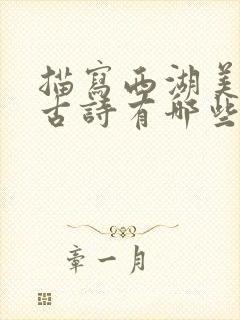 描寫西湖美
古詩有哪些
章一月